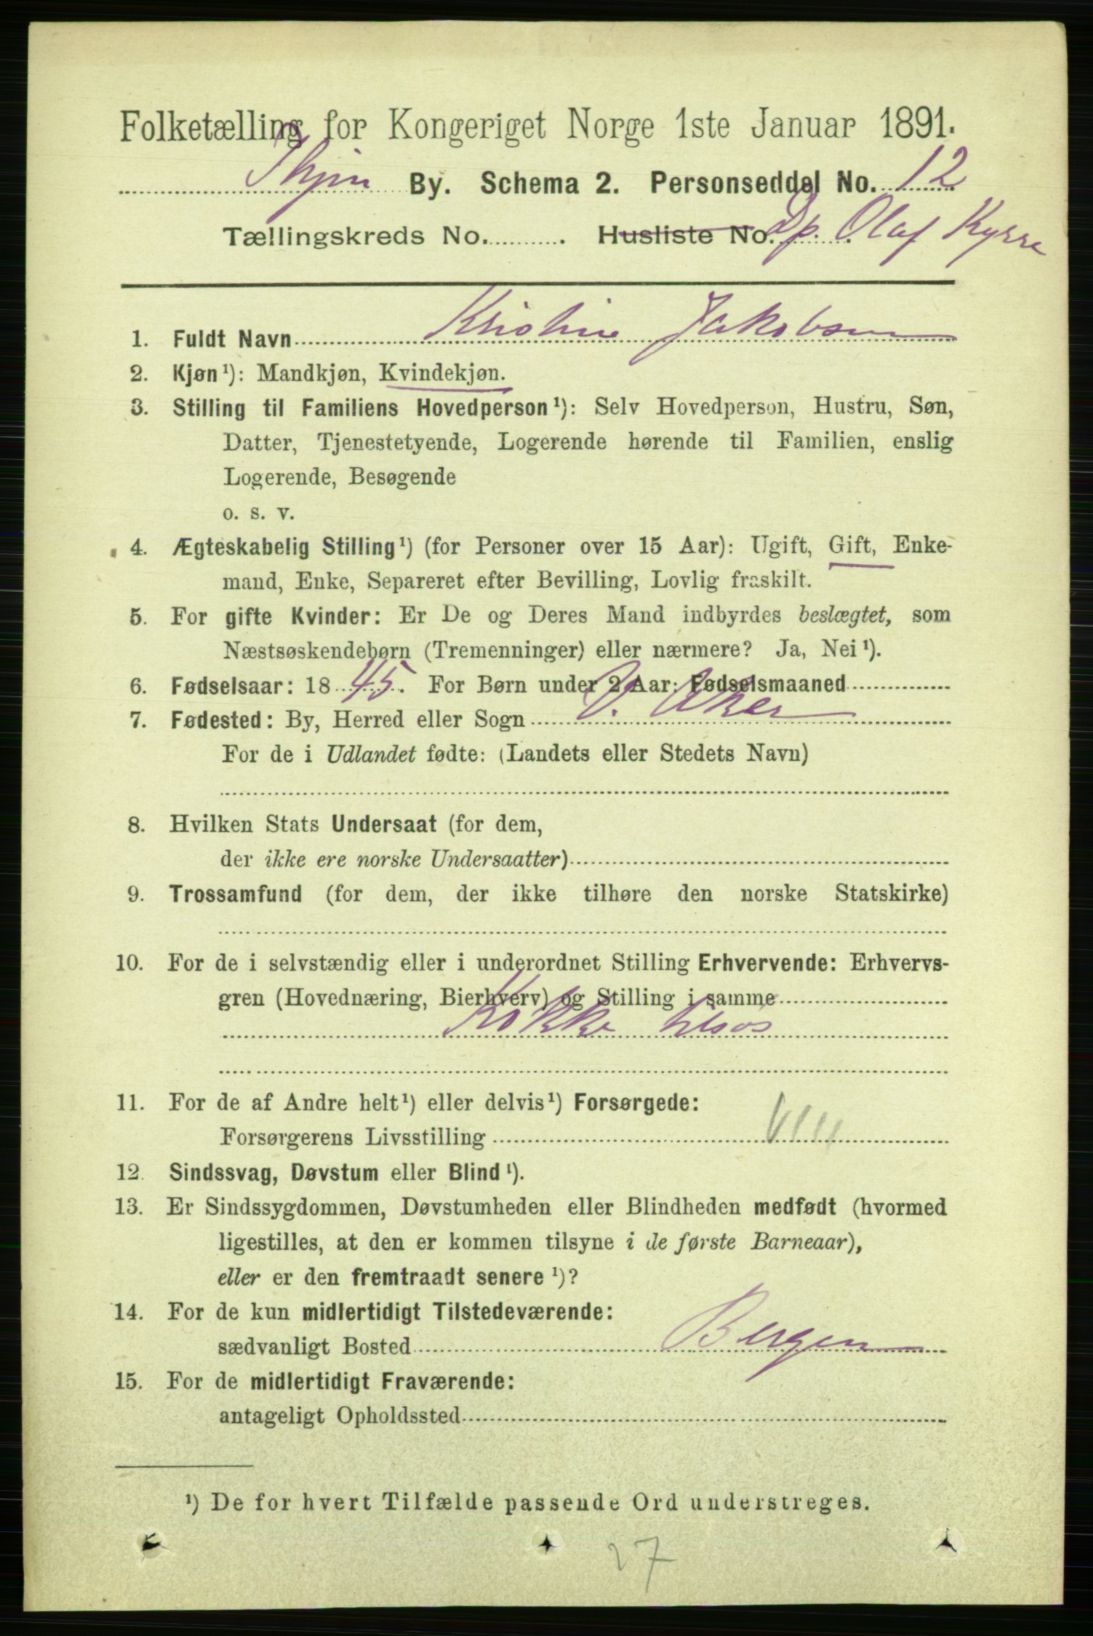 Folketælling for Kongeriget Norge 1ste Januar 1891.
Thjm By. Schema 2. Personseddel No. 12
Tællingskreds No. . Husliste No. Dp. Olaf Kyrre
1. Fuldt Navn Kristine Jakobsen
2. Kjøn¹): Mandkjøn, Kvindekjøn.
3. Stilling til Familiens Hovedperson¹): Selv Hovedperson, Hustru, Søn,
Datter, Tjenestetyende, Logerende hørende til Familien, enslig
Logerende, Besøgende
o. s. v.
4. Ægteskabelig Stilling¹) (for Personer over 15 Aar): Ugift, Gift, Enke-
mand, Enke, Separeret efter Bevilling, Lovlig fraskilt.
5. For gifte Kvinder: Er De og Deres Mand indbyrdes beslægtet, som
Næstsøskendebørn (Tremenninger) eller nærmere? Ja, Nei¹).
6. Fødselsaar: 1845. For Børn under 2 Aar: Fødselsmaaned
7. Fødested: By, Herred eller Sogn V. Aker
For de i Udlandet fødte: (Landets eller Stedets Navn)
8. Hvilken Stats Undersaat (for dem,
der ikke ere norske Undersaatter)
9. Trossamfund (for dem, der ikke tilhøre den norske Statskirke)
10. For de i selvstændig eller i underordnet Stilling Erhvervende: Erhvervs-
gren (Hovednæring, Bierhverv) og Stilling i samme
Kokke
11. For de af Andre helt¹) eller delvis¹) Forsørgede:
Forsørgerens Livsstilling
12. Sindssvag, Døvstum eller Blind¹).
13. Er Sindssygdommen, Døvstumheden eller Blindheden medfødt (hvormed
ligestilles, at den er kommen tilsyne i de første Barneaar),
eller er den fremtraadt senere¹)?
14. For de kun midlertidigt Tilstedeværende:
sædvanligt Bosted Bergen
15. For de midlertidigt Fraværende:
antageligt Opholdssted
¹) De for hvert Tilfælde passende Ord understreges.
27